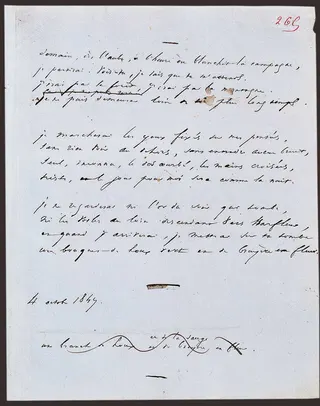 265
Demain, dès l'aube, à l'heure où blanchit la campagne,
je partirai. Vois-tu, je sais que tu m'attends.
j'irai par la forêt, j'irai par la montagne.
je ne puis demeurer loin de toi plus longtemps.
je marcherai les yeux fixés sur mes pensées,
sans rien voir au dehors, sans entendre aucun bruit,
seul, inconnu, le dos courbé, les mains croisées,
triste, et le jour pour moi sera comme la nuit.
je ne regarderai ni l'or du soir qui tombe,
ni les voiles au loin descendant vers Harfleur,
et quand j'arriverai, je mettrai sur ta tombe
un bouquet de houx vert et de bruyère en fleur.
4 octob 1847
un branche de houx et de bruyère en fleur.